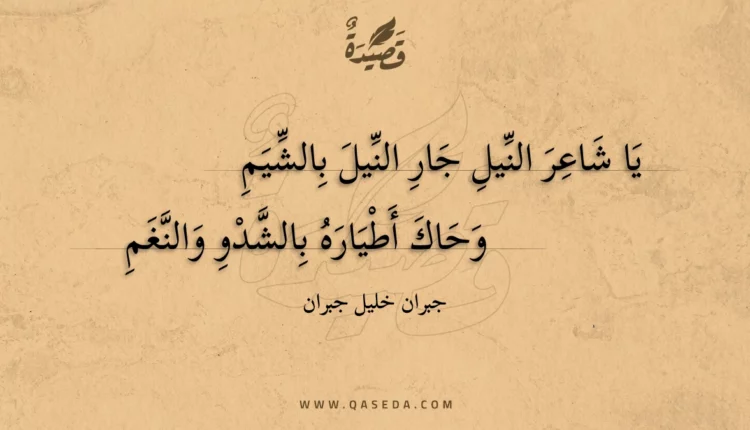 قَصِيْدَةٌ
يَا شَاعِرَ النِّيلِ جَارِ النِّيلَ بِالشِّيَمِ
وَحَاكَ أَطْيَارَهُ بِالشَّدْوِ وَالنَّغَمِ
جبران خليل جبران
WWW.QASEDA.COM